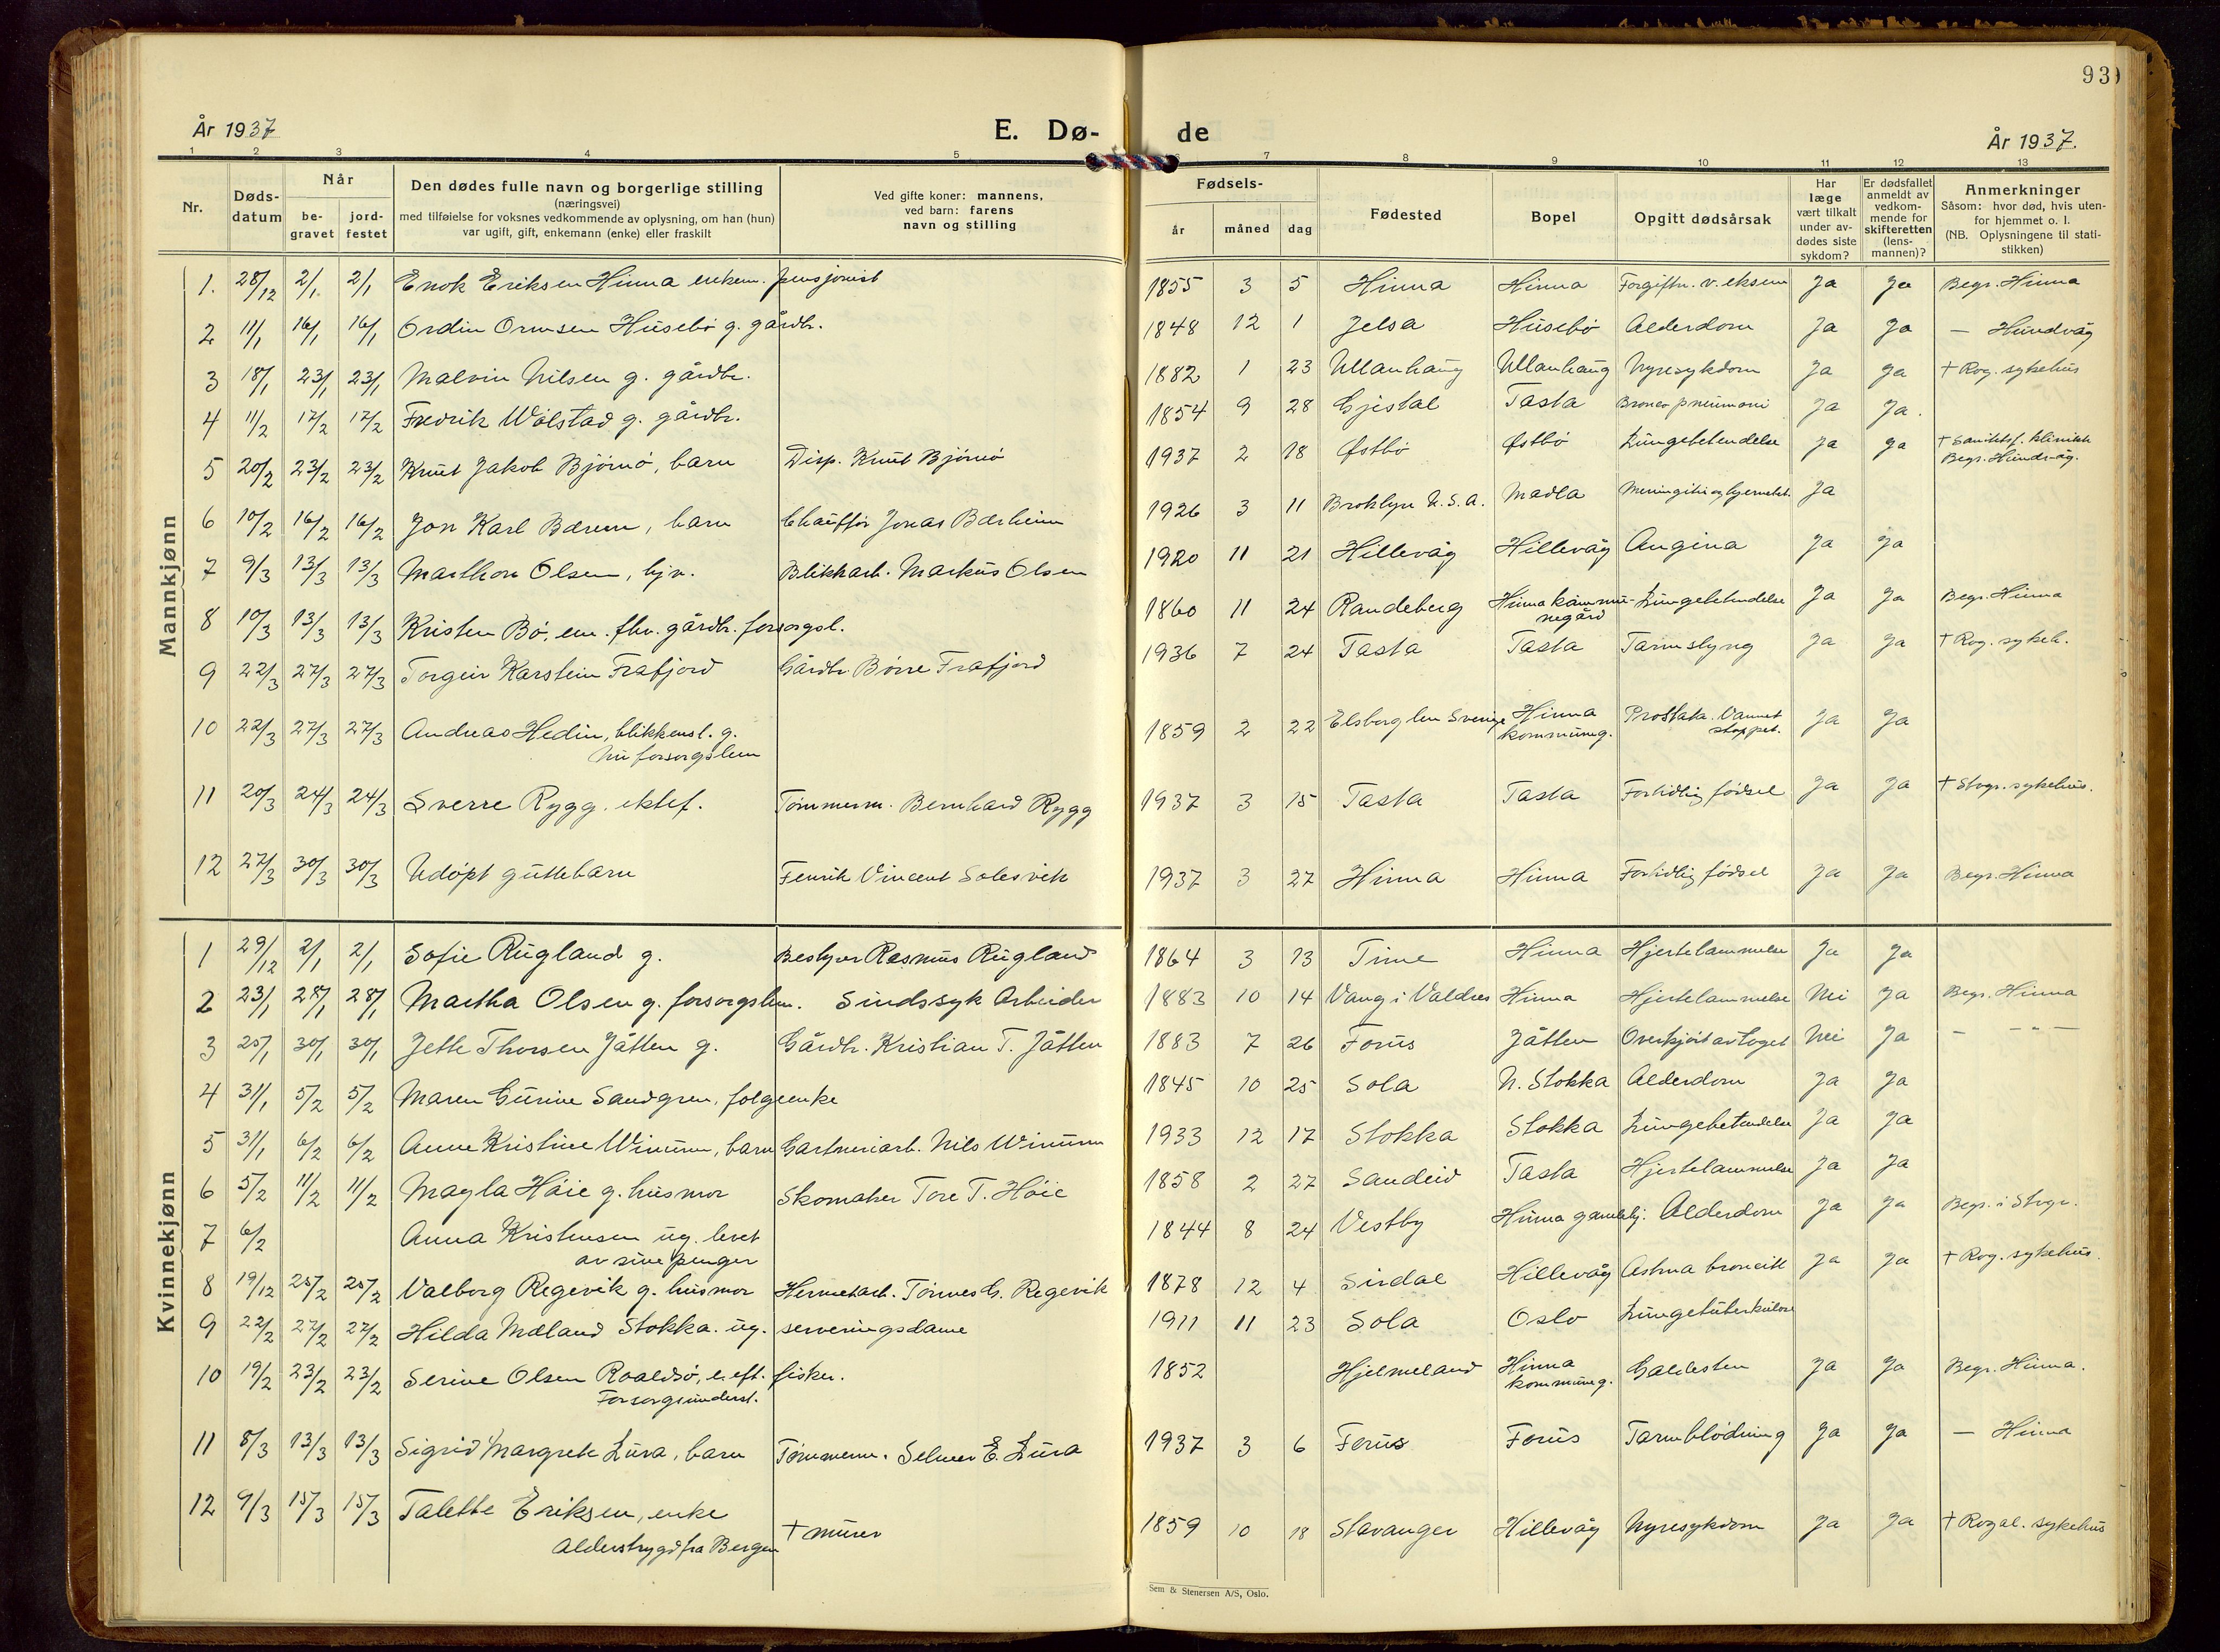 93
År 1937
E. Dø-
de
År 1937.
1 2 3 4 5 7 8 9 10 11 12 13
Nr.
Døds-
datum
Når
be-
gravet
jord-
festet
Den dødes fulle navn og borgerlige stilling
(næringsvei)
med tilføielse for voksnes vedkommende av oplysning, om han (hun)
var ugift, gift, enkemann (enke) eller fraskilt
Ved gifte koner: mannens,
ved barn: farens
navn og stilling
Fødsels-
år måned dag
Fødested
Bopel
Opgitt dødsårsak
Har
læge
vært tilkalt
under av-
dødes siste
sykdom?
Er dødsfallet
anmeldt av
vedkom-
mende for
skifteretten
(lens-
mannen)?
Anmerkninger
Såsom: hvor død, hvis uten-
for hjemmet o. l.
(NB. Oplysningene til stati-
stikken)
Mannkjønn
1. 28/12 2/1 2/1 Enok Eriksen Hinna enkem. pensjonist 1855 3 5 Hinna Hinna Forgiftn. v. eksem Ja Ja Begr. Hinna
2 11/1 16/1 16/1 Ordin Ormsen Husebø g. gårdbr. 1848 12 1 Jelsa Husebø Alderdom Ja Ja — Hundvåg
3 18/1 23/1 23/1 Malvin Nilsen g. gårdbr. 1882 1 23 Ullanhaug Ullanhaug Nyresykdom Ja Ja † Rog. sykehus
4 11/2 17/2 17/2 Fredrik Wølstad g. gårdbr. 1854 9 28 Gjestal Tasta Bronco pneumoni Ja Ja.
5 20/2 23/2 23/2 Knut Jakob Bjørnø, barn Disp. Knut Bjørnø 1937 2 18 Østbø Østbø Lungebetendelse Ja Ja † Sanitetsf. klinikk
Begr. Hundvåg.
6 10/2 16/2 16/2 Jon Karl Bærem, barn Chauffør Jonas Bærheim 1926 3 11 Broklyn U.S.A. Madla Meningitis og hjernebet. Ja
7 9/3 13/3 13/3 Marthon Olsen, hjv. Blikkarb. Markus Olsen 1920 11 21 Hillevåg Hillevåg Angina Ja Ja
8 10/3 13/3 13/3 Kristen Bø, em. fhv. gårdbr. forsorgsl. 1860 11 24 Randeberg Hinna kommu-
negård Lungebetendelse Ja Ja Begr. Hinna
9 22/3 27/3 27/3 Torgeir Karstein Frafjord Gårdbr. Børre Frafjord 1936 7 24 Tasta Tasta Tarmslyng Ja Ja † Rog. sykeh.
10 22/3 27/3 27/3 Andreas Hedin, blikkensl. g.
Nu forsorgslem 1859 2 22 Elsborg len Sverige Hinna
kommuneg. Prostata. Vannet
stoppet. Ja Ja
11 20/3 24/3 24/3 Sverre Rygg, ektef. Tømmerm. Bernhard Rygg 1937 3 15 Tasta Tasta Fortidlig fødsel Ja Ja † Stvgr. sykehus.
12 27/3 30/3 30/3 Udøpt guttebarn Fenrik Vincent Solesvik 1937 3 27 Hinna Hinna Fortidlig fødsel Ja Ja Begr. Hinna
Kvinnekjønn
1 29/12 2/1 2/1 Sofie Rugland g. Bestyrer Rasmus Rugland 1864 3 13 Time Hinna Hjertelammelse Ja Ja
2 23/1 28/1 28/1 Martha Olsen g. forsorgslem. Sindssyk Arbeider 1883 10 14 Vang i Valdres Hinna Hjertelammelse Nei Ja Begr. Hinna
3 25/1 30/1 30/1 Jette Thorsen Jåtten g. Gårdbr. Kristian T. Jåtten 1883 7 26 Forus Jåtten Overkjørt av toget Nei Ja — —"—
4 31/1 5/2 5/2 Maren Gurine Sandgren, folgeenke 1845 10 25 Sola N. Stokka Alderdom Ja Ja
5 31/1 6/2 6/2 Anne Kristine Winum, barn Gartneriarb. Nils Winum 1933 12 17 Stokka Stokka Lungebetendelse Ja Ja
6 5/2 11/2 11/2 Magla Høie g. husmor Skomaker Tore T. Høie 1858 2 27 Sandeid Tasta Hjertelammelse Ja Ja
7 6/2 Anna Kristensen ug. levet
av sine penger 1844 8 24 Vestby Hinna gamlehj. Alderdom Ja Ja Begr. i Stvgr.
8 19/12 25/2 25/2 Valborg Regevik g. husmor Hermetarb. Tønnes G. Regevik 1878 12 4 Sirdal Hillevåg Astma broncitt Ja Ja † Rog. sykehus.
9 22/2 27/2 27/2 Hilda Mæland Stokka. ug. serveringsdame 1911 11 23 Sola Oslo Lungetuberkulose
10 19/2 23/2 23/2 Serine Olsen Roaldsø, e. eft. fisker.
Forsorgsunderst. 1852 Hjelmeland Hinna
kommuneg. Galdesten Ja Ja Begr. Hinna.
11 8/3 13/3 13/3 Sigrid Margrete Lura, barn Tømmerm. Selmer E. Lura 1937 3 6 Forus Forus Tarmblødning Ja Ja — Hinna
12 9/3 15/3 15/3 Talette Eriksen, enke
Alderstrygd fra Bergen † murer 1859 10 18 Stavanger Hillevåg Nyresykdom Ja Ja † Rogal. sykehus
Sem & Stenersen A/S, Oslo.